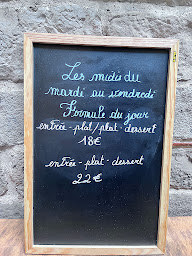 Les midis du
mardi au vendredi
Formule du jour
entrée - plat / plat - dessert
18€
entrée - plat - dessert
22€